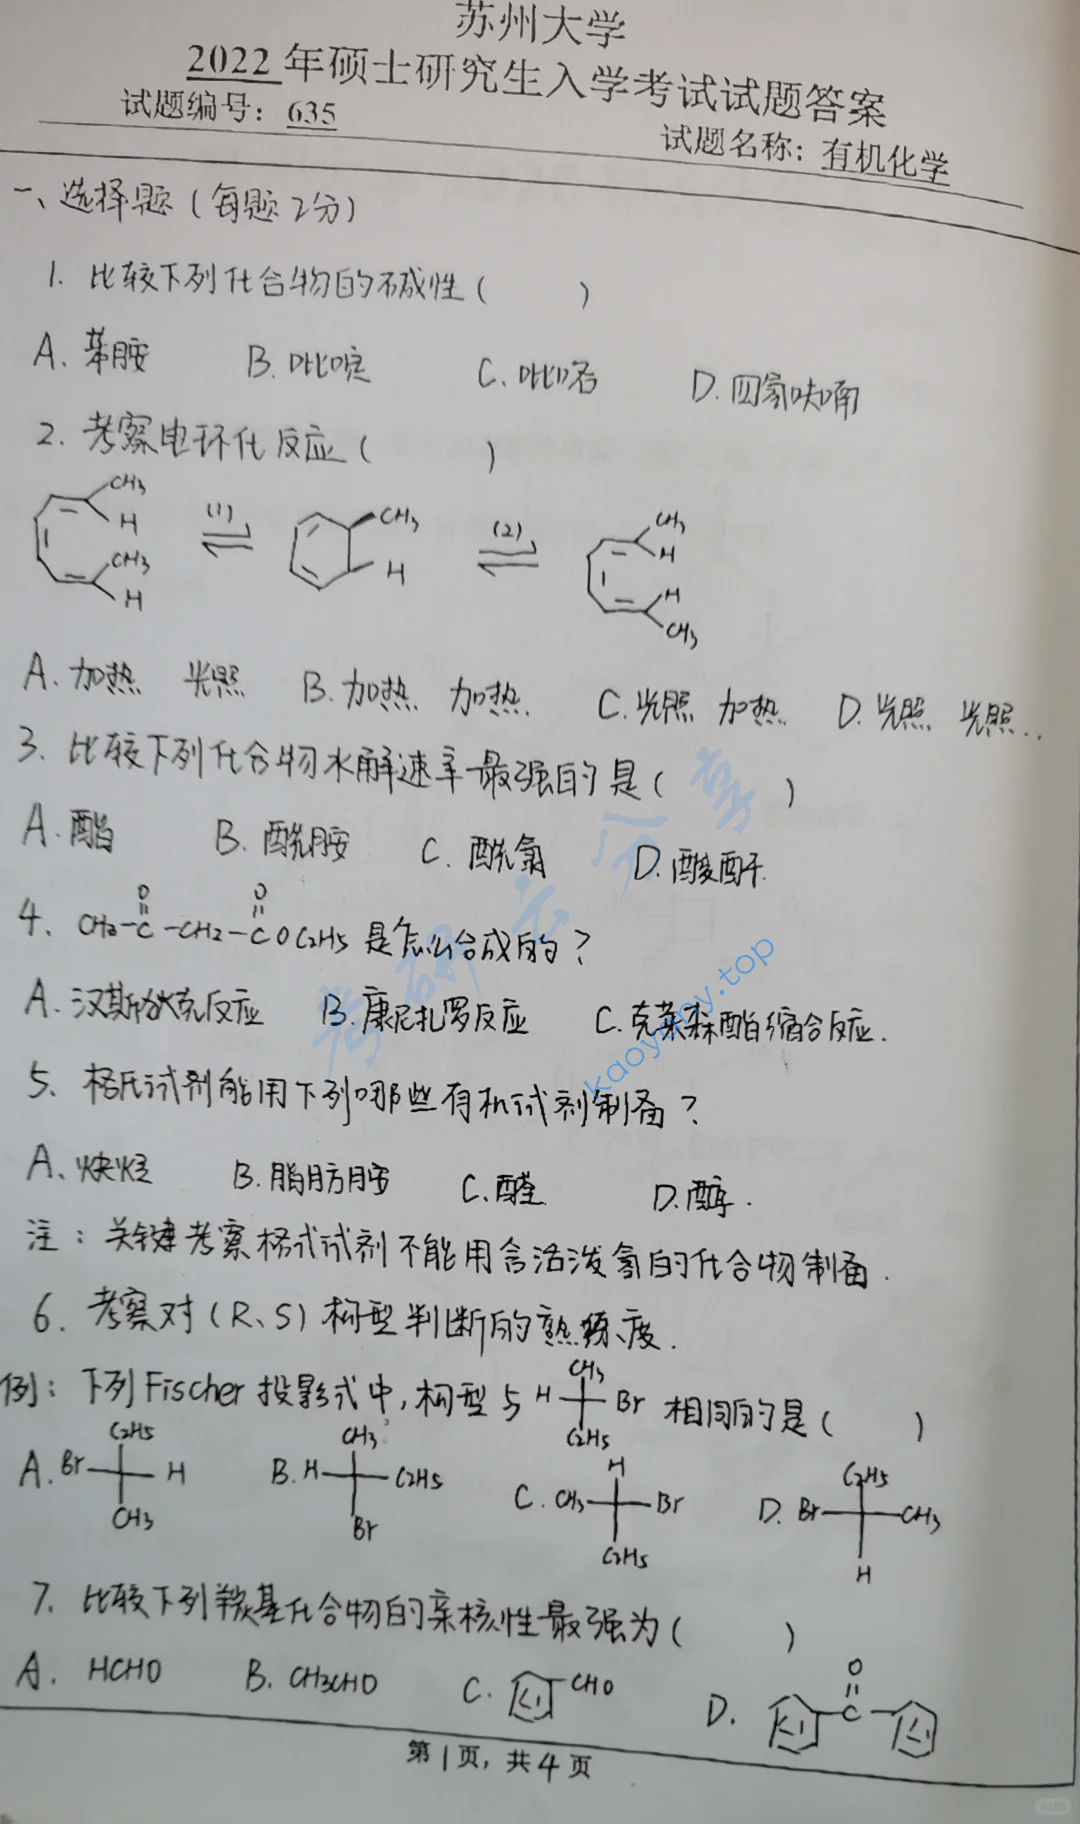 苏州大学
2022年硕士研究生入学考试试题答案
试题编号：635
试题名称：有机化学
一、选择题（每题2分）
1. 比较下列化合物的碱性（　　）
A. 苯胺 B. 吡啶 C. 吡咯 D. 四氢呋喃
2. 考察电环化反应（　　）
CH3 H CH3 H (1) CH3 H (2) CH3 H H CH3
A. 加热 光照 B. 加热 加热. C. 光照 加热 D. 光照 光照..
3. 比较下列化合物水解速率最强的是（　　）
A. 酯 B. 酰胺 C. 酰氯 D. 酸酐.
4、CH3-C(=O)-CH2-C(=O)OC2H5 是怎么合成的？
A. 汉斯狄克反应 B. 康尼扎罗反应 C. 克莱森酯缩合反应.
5、格氏试剂能用下列哪些有机试剂制备？
A、炔烃 B. 脂肪胺 C. 醛 D. 醇.
注：关键考察格式试剂不能用含活泼氢的化合物制备.
6. 考察对（R、S）构型判断的熟练度.
例：下列Fischer投影式中，构型与 H CH3 Br C2H5 相同的是（　　）
A. Br C2H5 H CH3 B. H CH3 C2H5 Br C. CH3 H Br C2H5 D. Br C2H5 CH3 H
7. 比较下列羰基化合物的亲核性最强为（　　）
A. HCHO B. CH3CHO C. CHO D. O C
第1页，共4页
考研云分享
kaoyany.top